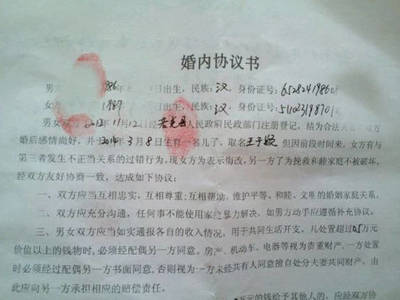 婚内协议书
男 986 日出生，民族：汉，身份证号：652824198601
女 1987 日出生，民族：汉，身份证号：511023198701
男女双 2012年11月12日经 县人民政府民政部门注册登记，结为合法夫
婚后感情尚好，并 年3月8日生有一名儿子，取名王子 但因前段时间来，女方有与
第三者发生不正当关系的过错行为，现女方为表示悔改，另一方了为挽救和睦家庭不被破坏，
经双方友好协商一致，达成如下协议：
一、双方应当互相忠实，互相尊重；互相帮助，维护平等、和睦、文明的婚姻家庭关系。
二、双方应充分沟通，任何事不能使用家庭暴力解决，如男方动手应遵循补充协议。
三、男女双方应当如实通报各自的收入情况，用于共同生活开支，凡处置超过 万元
价值以上的钱物时，必须经配偶另一方同意，房产、机动车、电器等视为贵重财产，一方处置
时必须经过配偶另一方书面同意，否则视为一方未经共有人同意擅自处分夫妻共同财产，由
此应向另一方承担相应的赔偿责任。
元的钱给予其他人的，应经双方协